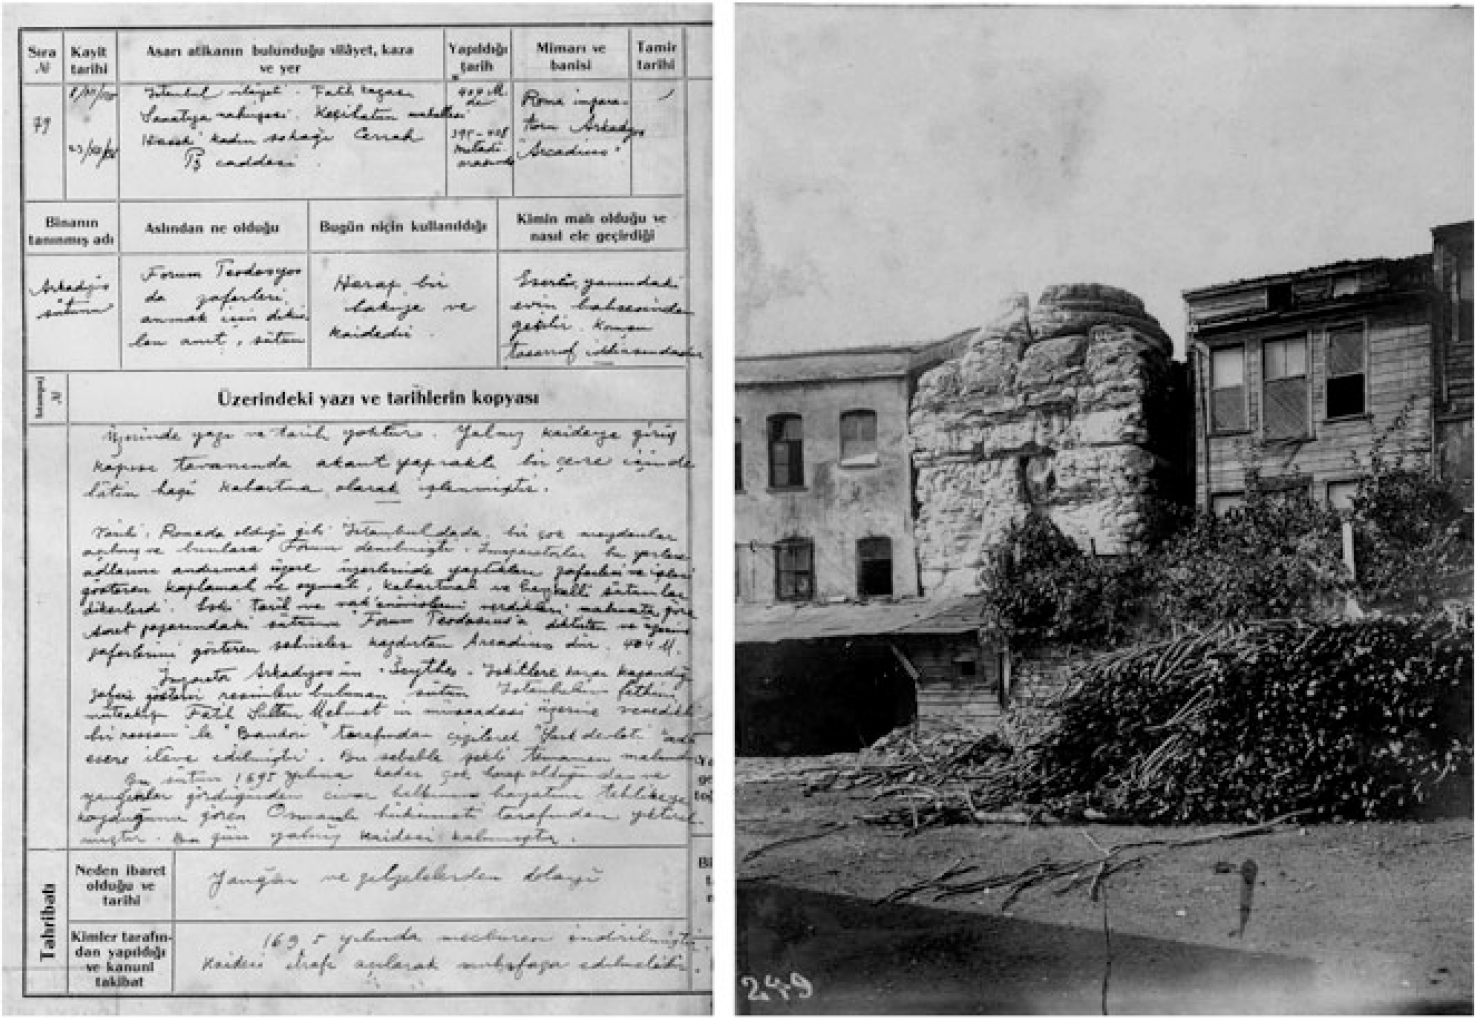 Sıra
№
Kayit
tarihi
Asarı atikanın bulunduğu vilâyet, kaza
ve yer
Yapıldığı
tarih
Mimarı ve
banisi
Tamir
tarihi
79
İstanbul vilâyeti. Fatih kazası
Samatya nahiyesi. Keçihatun mahallesi
Haseki kadın sokağı Cerrah
Pş caddesi
404 M.
de
395-408
miladi
arasında
Roma impara-
toru Arkadyos
"Arcadius"
Binanın
tanınmış adı
Aslından ne olduğu
Bugün niçin kullanıldığı
Kimin malı olduğu ve
nasıl ele geçirdiği
Arkadyos
sütunu
Forum Teodosyos
da zaferleri
anmak için diki-
len anıt, sütun
Harap bir
bakiye ve
kaidedir.
Eserin yanındaki
evin bahçesinden
geçilir. Komşu
tasarruf iddiasındadır
№
Üzerindeki yazı ve tarihlerin kopyası
Üzerinde yazı ve tarih yoktur. Yalnız kaideye giriş
kapısı tavanında akant yapraklı bir çevre içinde
lâtin haçı kabartma olarak işlenmiştir.
Tarihi: Romada olduğu gibi İstanbulda da bir çok meydanlar
açılmış ve bunlara Forum denilmiştir. İmparatorlar bu yerlere
adlarını andırmak üzere üzerlerinde yaptıkları zaferleri ve işleri
gösteren kaplamalı ve oymalı, kabartmalı ve heykelli sütunlar
dikerlerdi. Eski tarih ve verdikleri malumata göre
Avret pazarındaki sütunu Forum Teodosius'a diktiren ve üzerine
zaferlerini gösteren sahneler kazdırtan Arcadius dür. 404 M.
İmparator Arkadyos'un Scythes - İskitlere karşı kazandığı
zaferi gösteren resimleri bulunan sütun İstanbulun fethini
müteakip Fatih Sultan Mehmet in müsaadesi üzerine venedikli
bir ressam tarafından çizilerek
esere ilâve edilmiştir. Bu sebeble şekli tamamen malumdur
Bu sütun 1695 yılına kadar çok harap olduğundan ve
yangınlar gördüğünden civar halkının hayatını tehlikeye
koyduğunu gören Osmanlı hükümeti tarafından yıktırıl-
mıştır. Bu gün yalnız kaidesi kalmıştır.
Tahribatı
Neden ibaret
olduğu ve
tarihi
Yangın ve zelzelelerden dolayı
Kimler tarafın-
dan yapıldığı
ve kanuni
takibat
1695 yılında mecburen indirilmiştir
Kaidesi etrafı açılarak muhafaza edilmelidir.
249